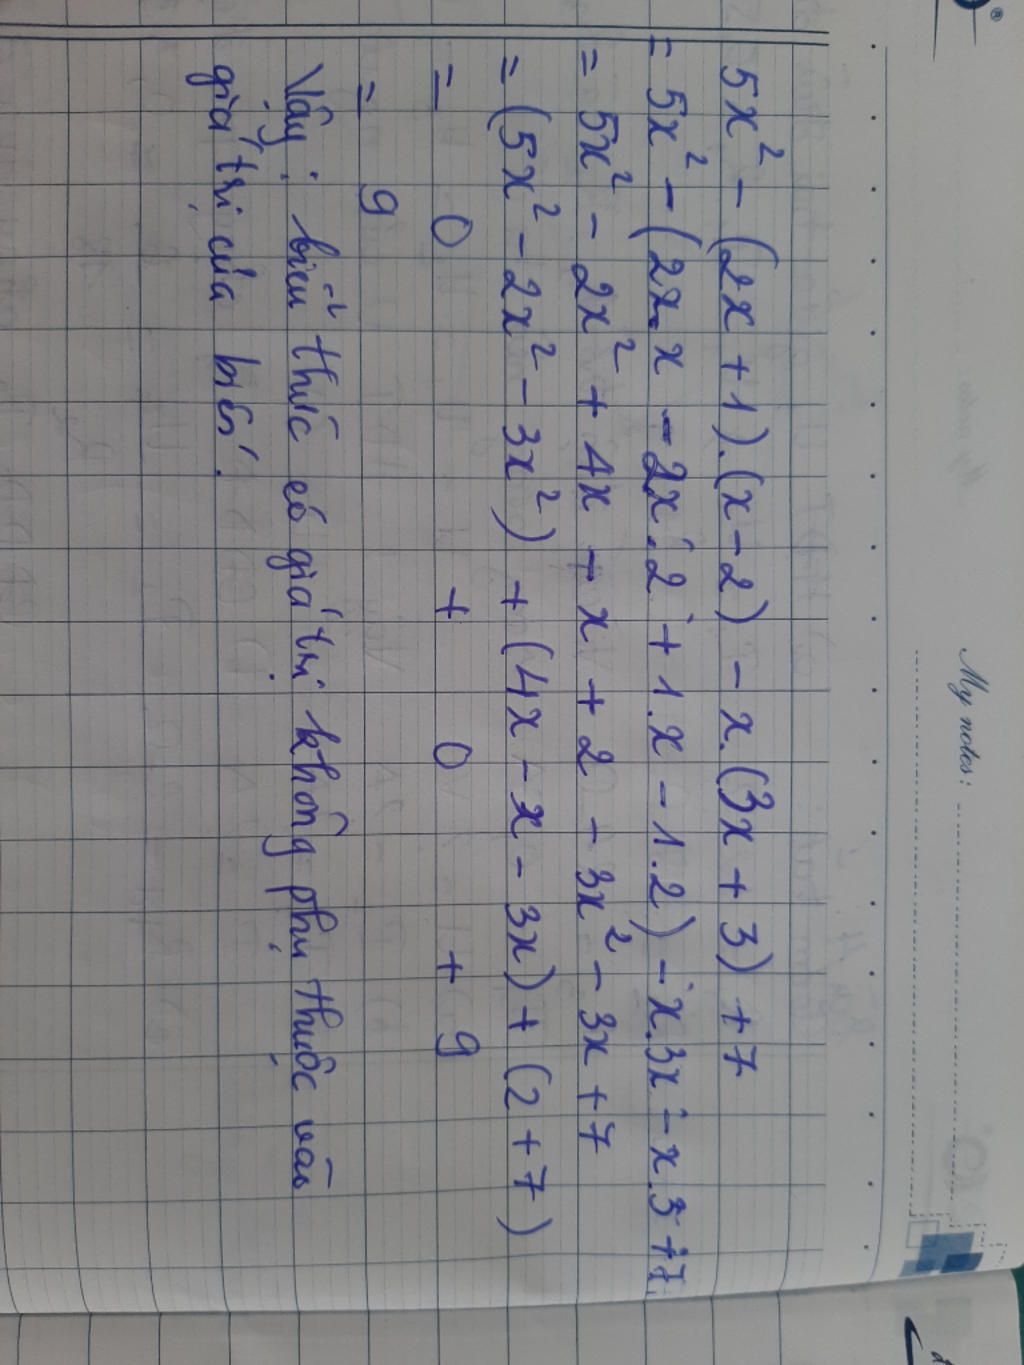 My notes:
5x² - (2x + 1).(x - 2) - x.(3x + 3) + 7
= 5x² - (2x.x - 2x.2 + 1.x - 1.2) - x.3x - x.3 + 7
= 5x² - 2x² + 4x - x + 2 - 3x² - 3x + 7
= (5x² - 2x² - 3x²) + (4x - x - 3x) + (2 + 7)
= 0 + 0 + 9
= 9
Vậy: biểu thức có giá trị không phụ thuộc vào
giá trị của biến.